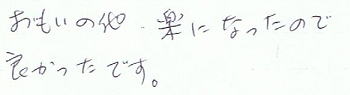 おもいの他、楽になったので
良かったです。